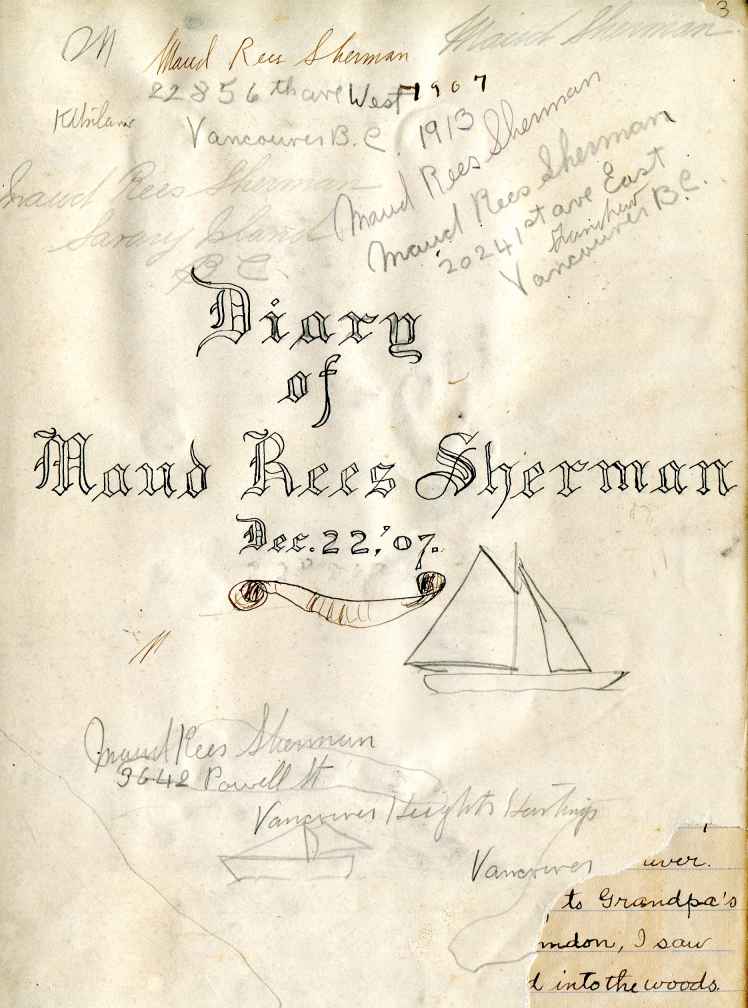 3
M
Maud Rees Sherman
Maud Sherman
22856 th ave West 1907
Kitsilano
Vancouver B.C. 1913
Maud Rees Sherman
Maud Rees Sherman
20241st ave East
Vancouver B.C.
Maud Rees Sherman
Savary Island
B.C.
Diary
of
Maud Rees Sherman
Dec. 22,'07.
M
Maud Rees Sherman
3642 Powell St
Vancouver Heights Hastings
Vancouver
uver.
to Grandpa's
ndon, I saw
d into the woods.